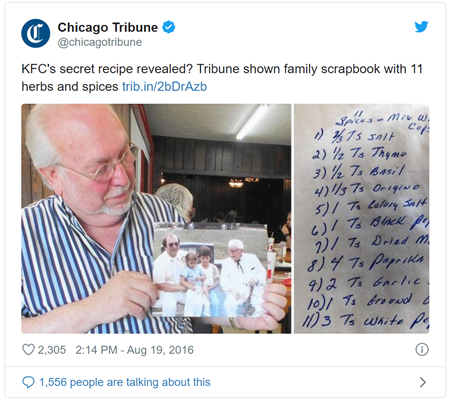 Chicago Tribune
@chicagotribune
KFC's secret recipe revealed? Tribune shown family scrapbook with 11
herbs and spices trib.in/2bDrAzb
11
Spices - Mix W.
1) 2/3 Ts Salt
2) 1/2 Ts Thyme
3) 1/2 Ts Basil
4) 1/3 Ts Origino
5) 1 Ts Celery Salt
6) 1 Ts Black
7) 1 Ts Dried
8) 4 Ts Paprika
9) 2 Ts Garlic
10) 1 Ts Ground
11) 3 Ts White
2,305 2:14 PM - Aug 19, 2016
1,556 people are talking about this